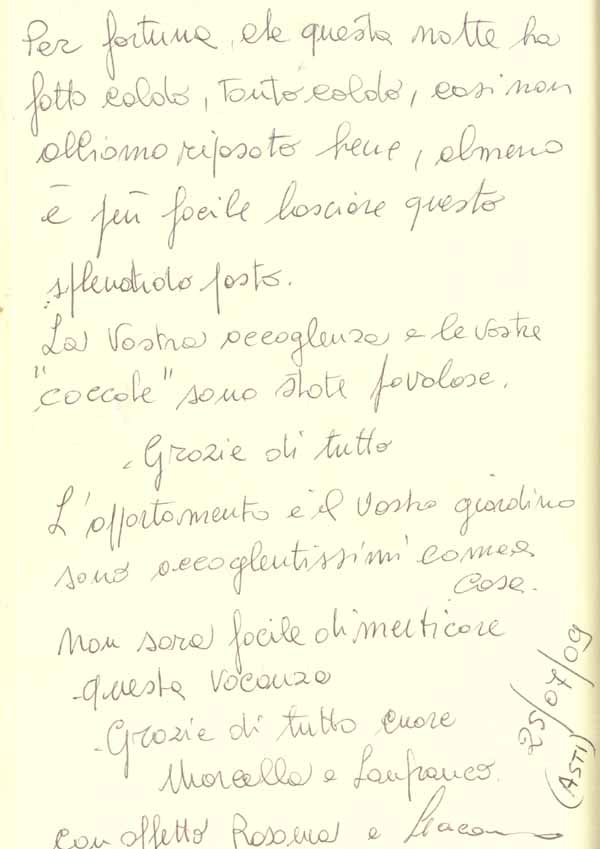 Per fortuna, che questa notte ha
fatto caldo, tanto caldo, così non
abbiamo riposato bene, almeno
è più facile lasciare questo
splendido posto.
La Vostra accoglienza e le vostre
"coccole" sono state favolose.
Grazie di tutto
L'appartamento e il Vostro giardino
sono accoglentissimi come a
casa.
Non sarà facile dimenticare
questa vacanza
Grazie di tutto cuore
Marcella e Lanfranco.
con affetto Rosanna e
25/07/09
(ASTI)